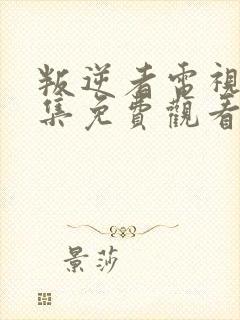 叛逆者電視
集免費觀看
景莎